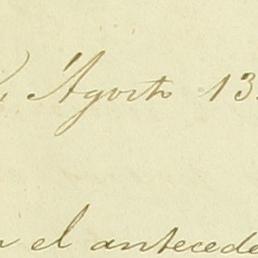 Agosto 13
el antecede